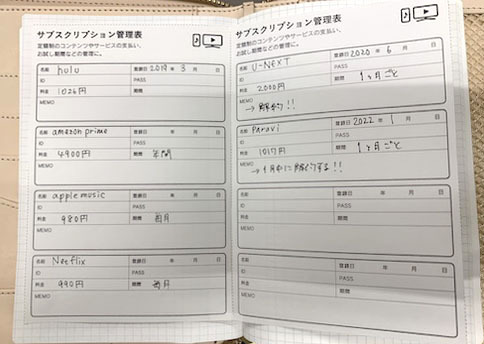 サブスクリプション管理表
定額制のコンテンツやサービスの支払い、
お試し期間などの管理に。
名称 hulu 登録日 2019年 3月 日
ID PASS
料金 1026円 期間
MEMO
名称 amazon prime 登録日 年 月 日
ID PASS
料金 4900円 期間 年間
MEMO
名称 apple music 登録日 年 月 日
ID PASS
料金 980円 期間 毎月
MEMO
名称 Netflix 登録日 年 月 日
ID PASS
料金 990円 期間 毎月
MEMO
サブスクリプション管理表
定額制のコンテンツやサービスの支払い、
お試し期間などの管理に。
名称 U-NEXT 登録日 2020年 6月 日
ID PASS
料金 2000円 期間 1ヶ月ごと
MEMO → 解約!!
名称 Paravi 登録日 2022年 1月 日
ID PASS
料金 1017円 期間 1ヶ月ごと
MEMO → 1月中に解約する!!
名称 登録日 年 月 日
ID PASS
料金 期間
MEMO
名称 登録日 年 月 日
ID PASS
料金 期間
MEMO